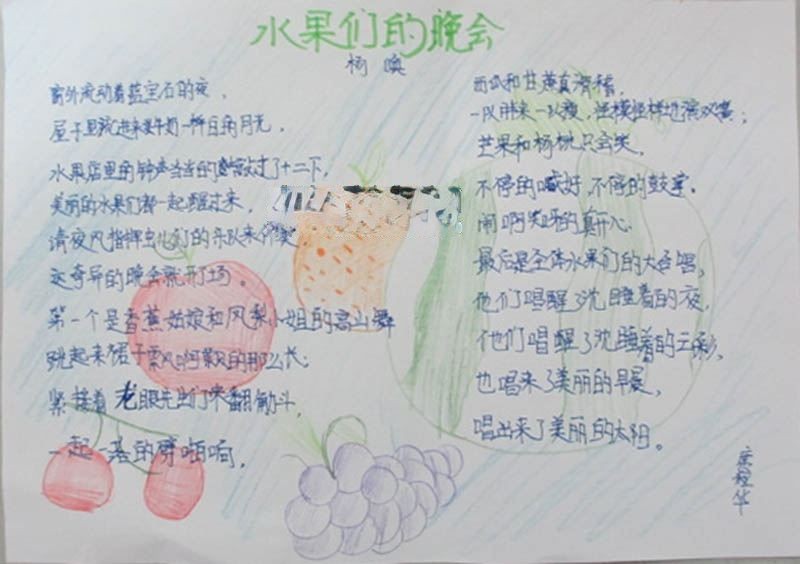 水果们的晚会
杨唤
窗外流动着蓝宝石的夜，
屋子里流进来牛奶一样白的月光，
水果店里的钟声当当的敲过了十二下，
美丽的水果们都一起醒过来，
请夜风指挥虫儿们的乐队来伴奏，
这奇异的晚会就开了场。
第一个是香蕉姑娘和凤梨小姐的高山舞
跳起来裙子飘呀飘的那么长；
紧接着龙眼先生们来翻觔斗，
一起一落的劈啪响，
西瓜和甘蔗真滑稽，
一队胖来一队瘦，怪模怪样地演双簧；
芒果和杨桃只会笑，
不停的喊好，不停的鼓掌。
闹啊笑呀的真开心
最后是全体水果们的大合唱，
他们唱醒了沈睡着的夜，
他们唱醒了沈睡着的云彩，
也唱来了美丽的早晨，
唱出来了美丽的太阳。